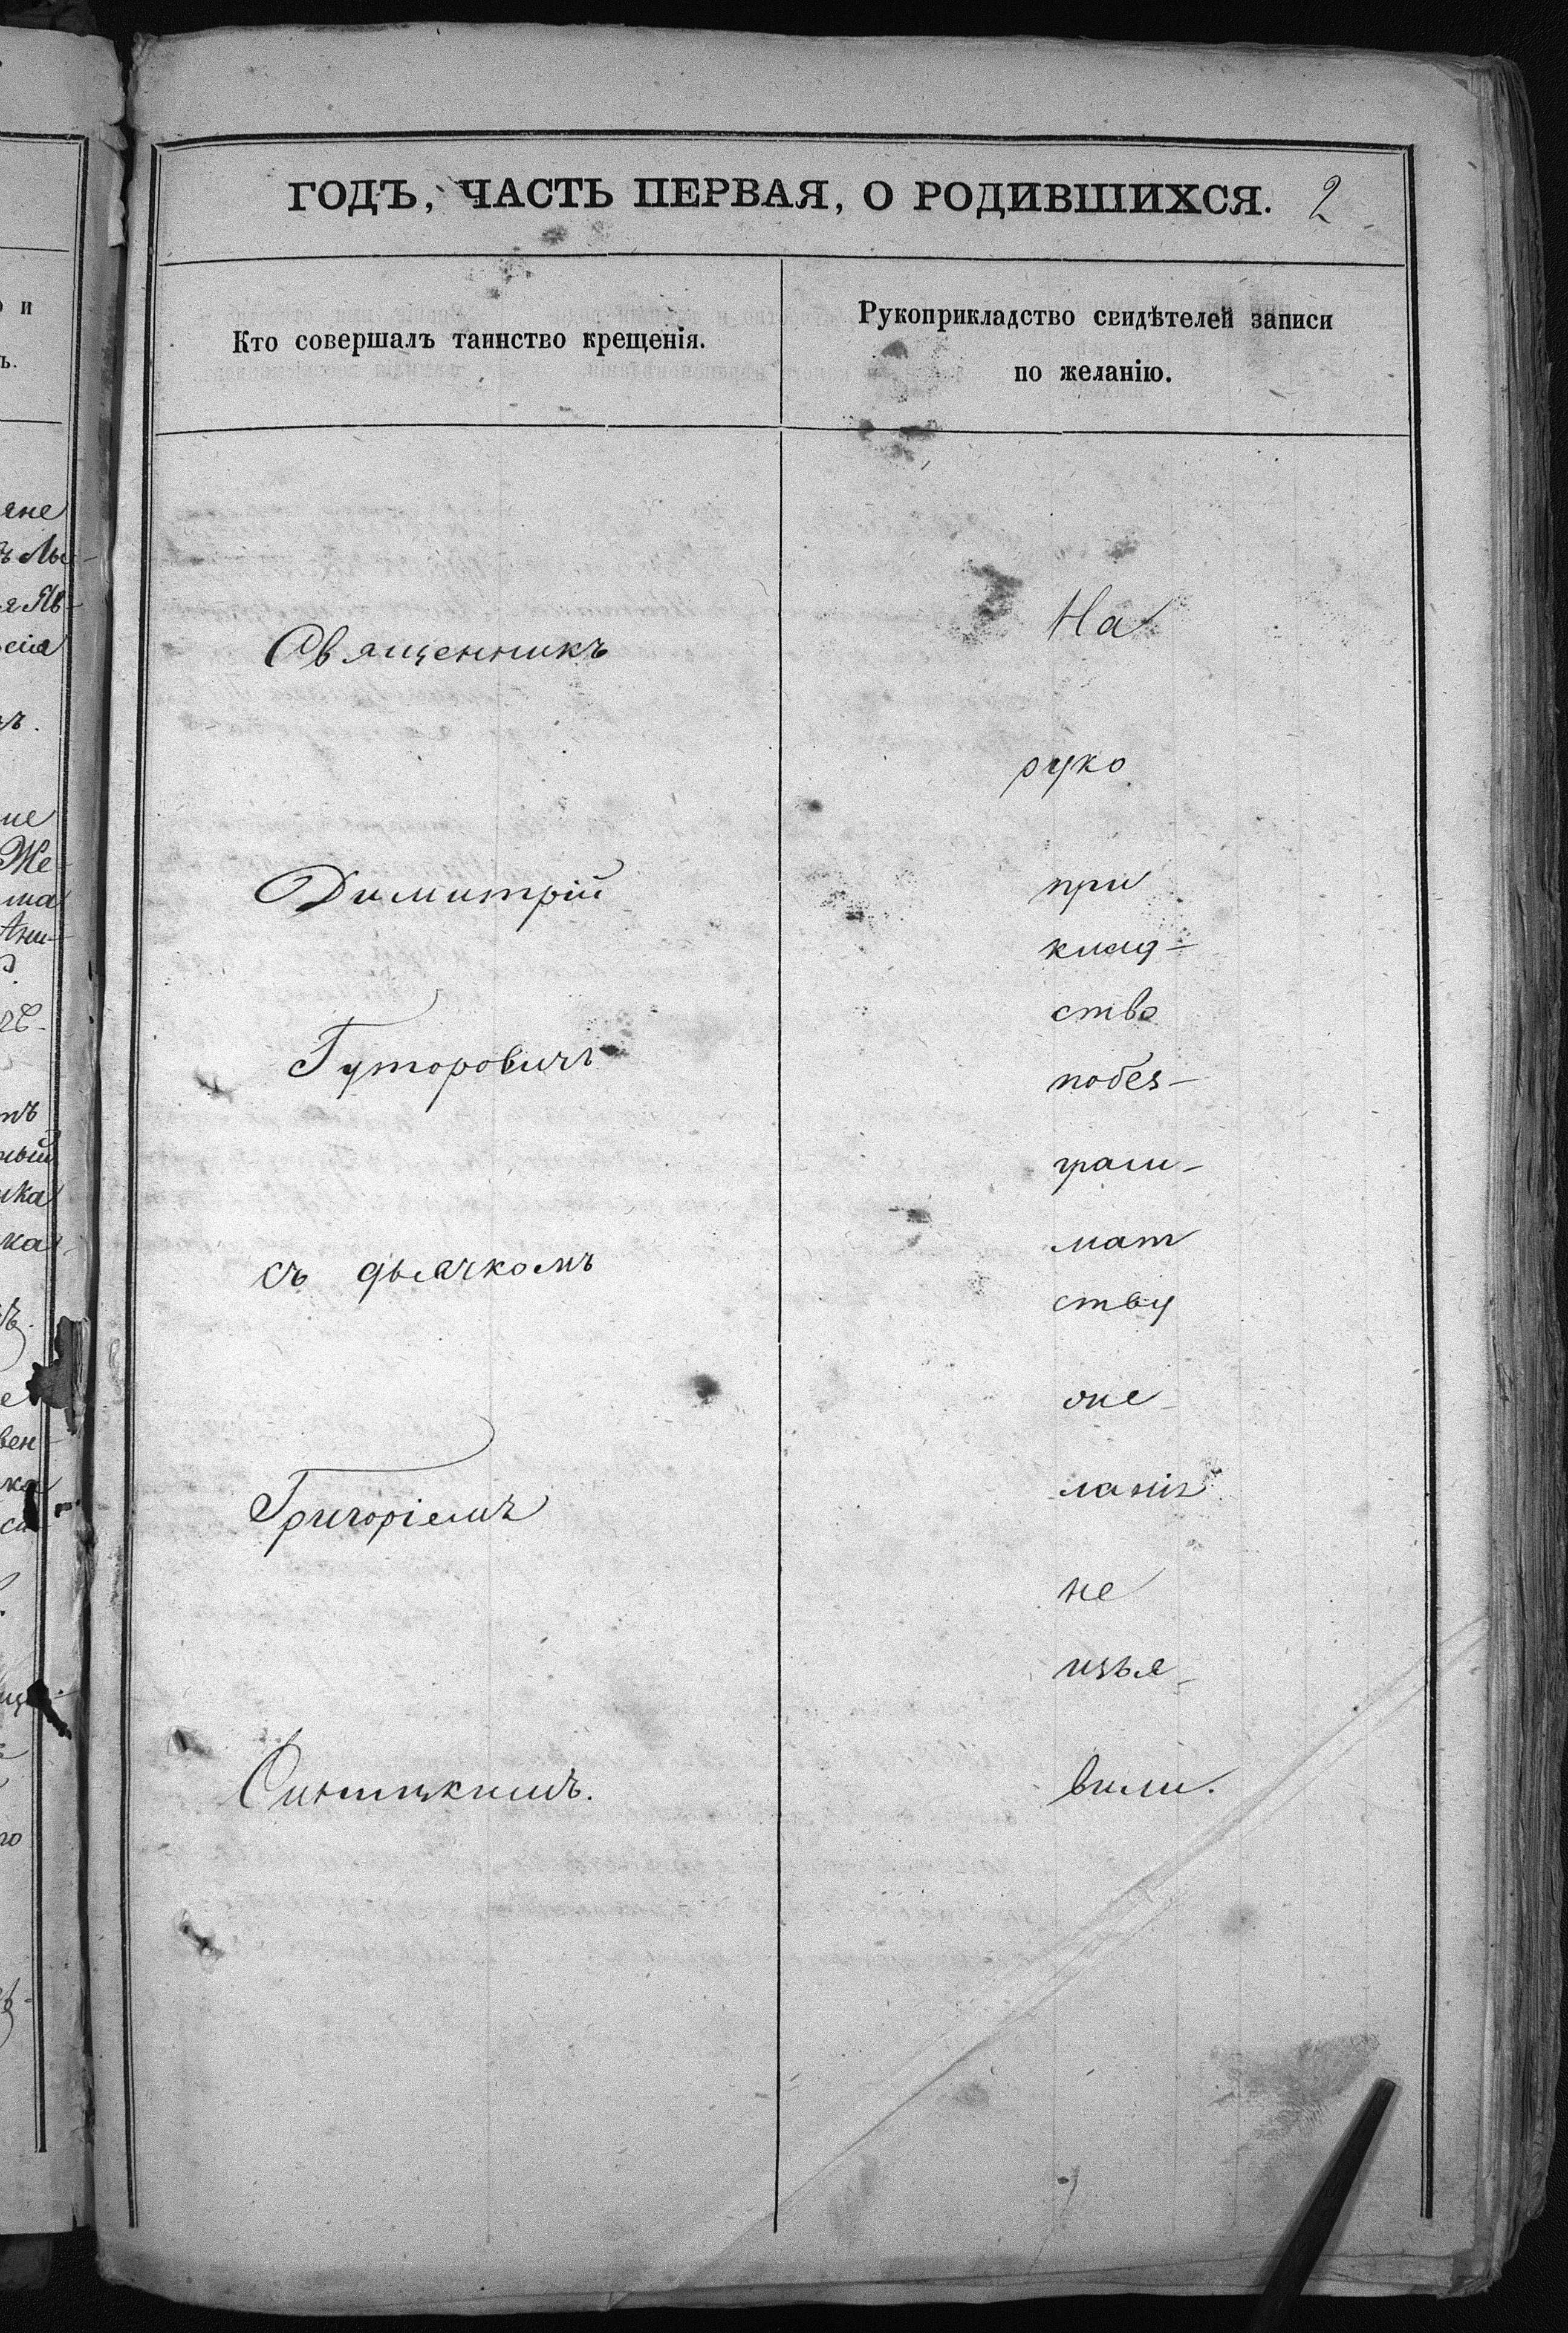 ГОДЪ, ЧАСТЬ ПЕРВАЯ, О РОДИВШИХСЯ. 2
Кто совершалъ таинство крещенія.
Рукоприкладство свидѣтелей записи
по желанію.
Священникъ
Димитрій
Гуторовичъ
съ дьячкомъ
Григоріемъ
Синицкимъ.
На
руко
при
клад-
ство
побез-
грам-
мат
ству
же-
ланія
не
изъя-
вили.